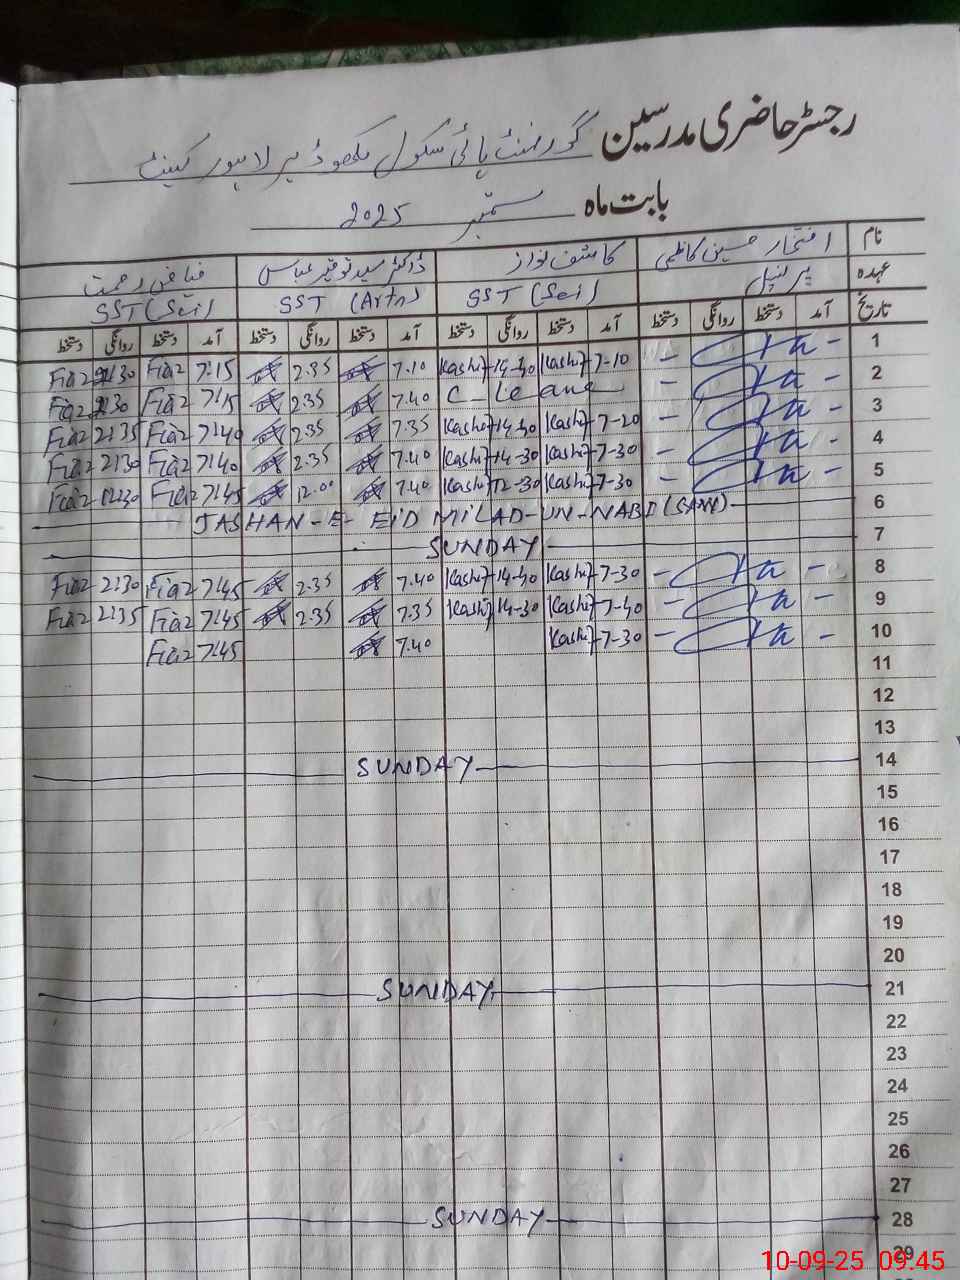 رجسٹر حاضری مدرسین گورنمنٹ ہائی سکول لکھوڈیر لاہور کینٹ
بابت ماہ ستمبر 2025
نام افتخار حسین کاظمی کاشف نواز ڈاکٹر سید توقیر عباس فیاض رحمت
عہدہ پرنسپل SST (Sci) SST (Arts) SST (Sci)
تاریخ آمد دستخط روانگی دستخط آمد دستخط روانگی دستخط آمد دستخط روانگی دستخط آمد دستخط روانگی دستخط
1 7-10 Kashif 14-30 Kashif 7.10 2.35 7:15 Fiaz 2:30 Fiaz
2 C-Leave 7.40 2.35 7:15 Fiaz 2:30 Fiaz
3 7-20 Kashif 14-30 Kashif 7.35 2.35 7:40 Fiaz 2:35 Fiaz
4 7-30 Kashif 14-30 Kashif 7.40 2.35 7:40 Fiaz 2:30 Fiaz
5 7-30 Kashif 12-30 Kashif 7.40 12.00 7:45 Fiaz 12:30 Fiaz
6 JASHAN-E-EID MILAD-UN-NABI (SAW)
7 SUNDAY
8 7-30 Kashif 14-30 Kashif 7.40 2.35 7:45 Fiaz 2:30 Fiaz
9 7-40 Kashif 14-30 Kashif 7.35 2.35 7:45 Fiaz 2:35 Fiaz
10 7-30 Kashif 7.40 7:45 Fiaz
11
12
13
14 SUNDAY
15
16
17
18
19
20
21 SUNDAY
22
23
24
25
26
27
28 SUNDAY
29
10-09-25 09:45